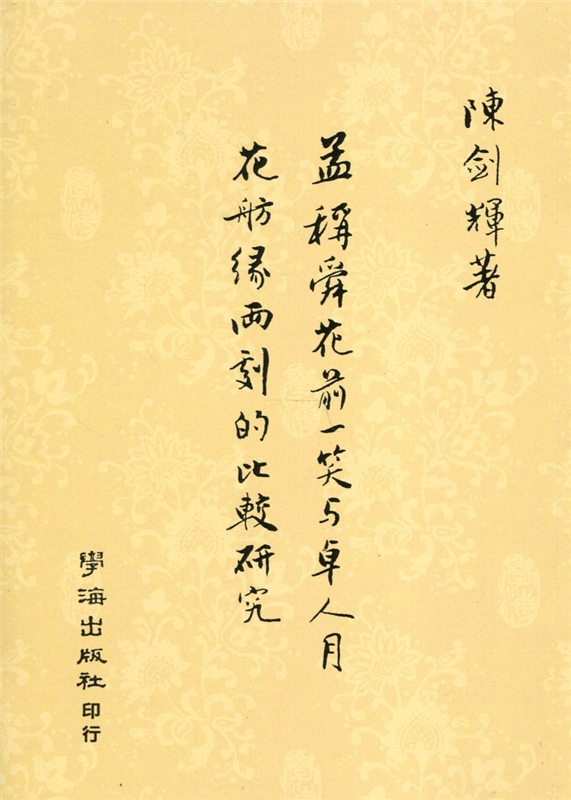 陳剑輝著
孟稱舜花前一笑与卓人月
花舫緣两刻的比較研究
學海出版社印行